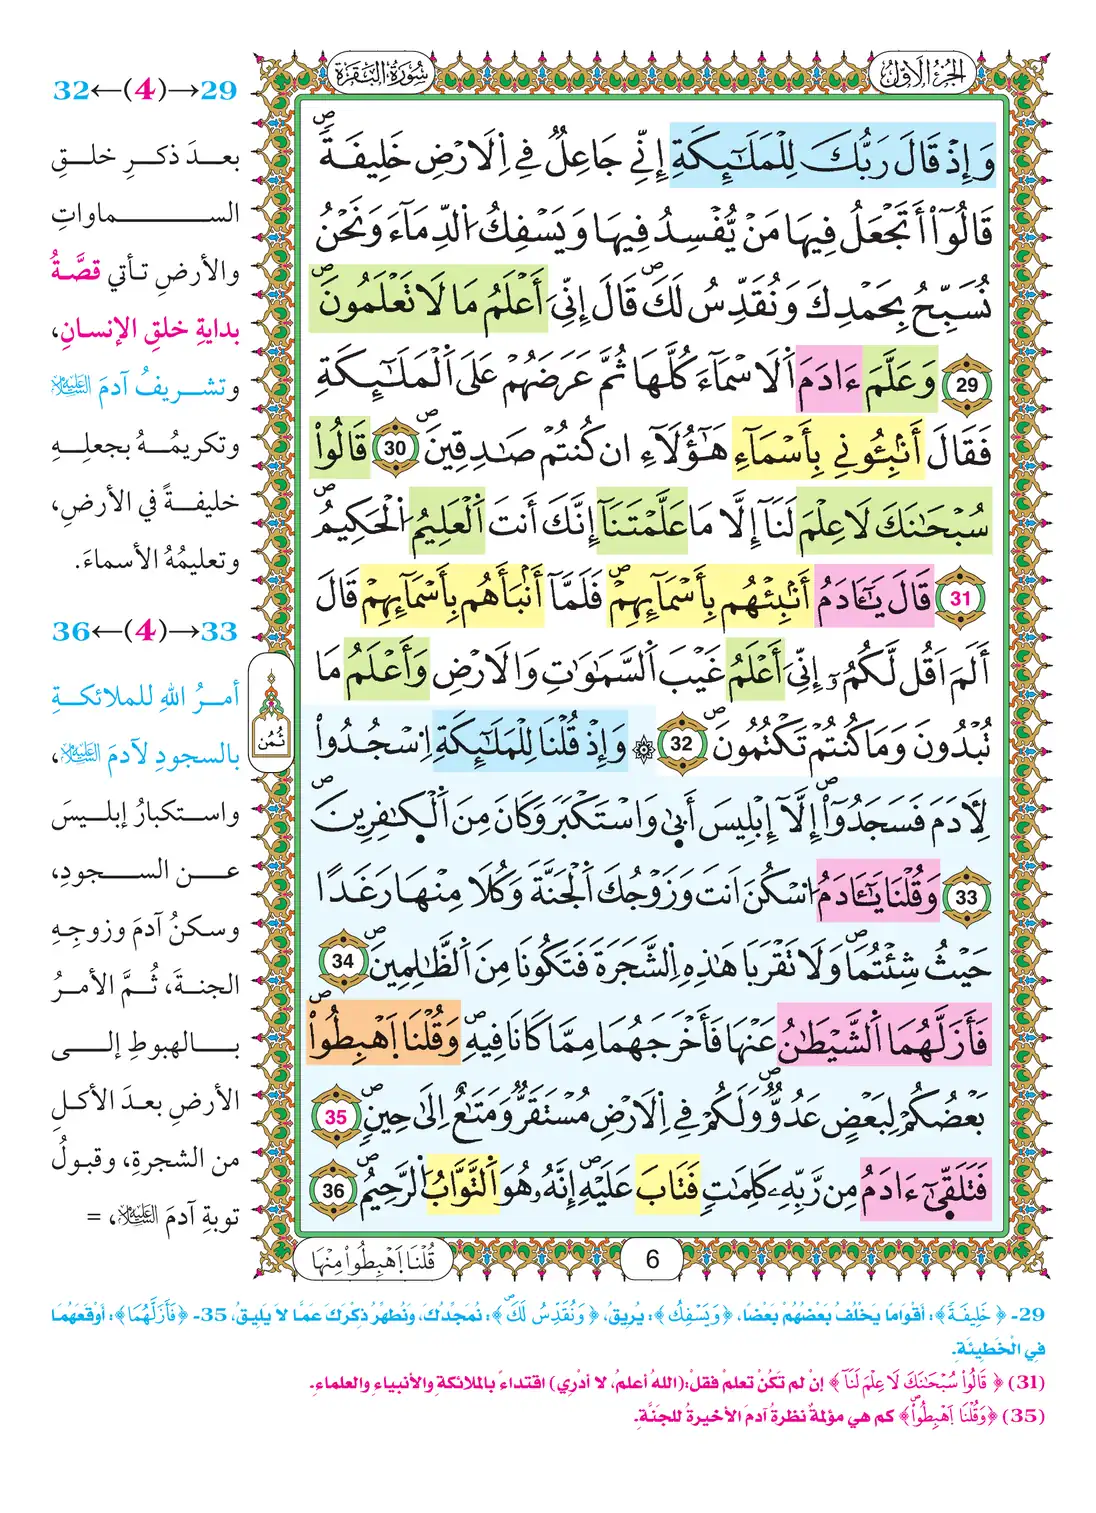 الجزء الأول
سورة البقرة
وَإِذْ قَالَ رَبُّكَ لِلْمَلَٰٓئِكَةِ إِنِّي جَاعِلٌ فِي اِ۬لَارْضِ خَلِيفَةٗۖ
قَالُوٓاْ أَتَجْعَلُ فِيهَا مَنْ يُّفْسِدُ فِيهَا وَيَسْفِكُ اُ۬لدِّمَآءَ وَنَحْنُ
نُسَبِّحُ بِحَمْدِكَ وَنُقَدِّسُ لَكَۖ قَالَ إِنِّيَ أَعْلَمُ مَا لَا تَعْلَمُونَۖ
29 وَعَلَّمَ ءَادَمَ اَ۬لَاسْمَآءَ كُلَّهَا ثُمَّ عَرَضَهُمْ عَلَى اَ۬لْمَلَٰٓئِكَةِ
فَقَالَ أَنۢبِـُٔونِي بِأَسْمَآءِ هَٰٓؤُلَآءِ ان كُنتُمْ صَٰدِقِينَۖ 30 قَالُواْ
سُبْحَٰنَكَ لَا عِلْمَ لَنَآ إِلَّا مَا عَلَّمْتَنَآ إِنَّكَ أَنتَ اَ۬لْعَلِيمُ اُ۬لْحَكِيمُۖ
31 قَالَ يَٰٓـَٔادَمُ أَنۢبِئْهُم بِأَسْمَآئِهِمْۖ فَلَمَّآ أَنۢبَأَهُم بِأَسْمَآئِهِمْ قَالَ
أَلَمَ اَقُل لَّكُمُۥٓ إِنِّيَ أَعْلَمُ غَيْبَ اَ۬لسَّمَٰوَٰتِ وَالَارْضِ وَأَعْلَمُ مَا
تُبْدُونَ وَمَا كُنتُمْ تَكْتُمُونَۖ 32 ۞ وَإِذْ قُلْنَا لِلْمَلَٰٓئِكَةِ اِ۟سْجُدُواْ
لِأٓدَمَ فَسَجَدُوٓاْۖ إِلَّآ إِبْلِيسَ أَبَىٰ وَاسْتَكْبَرَ وَكَانَ مِنَ اَ۬لْكَٰفِرِينَۖ
33 وَقُلْنَا يَٰٓـَٔادَمُ اُ۟سْكُنَ اَنتَ وَزَوْجُكَ اَ۬لْجَنَّةَ وَكُلَا مِنْهَا رَغَدًا
حَيْثُ شِئْتُمَاۖ وَلَا تَقْرَبَا هَٰذِهِ اِ۬لشَّجَرَةَ فَتَكُونَا مِنَ اَ۬لظَّٰلِمِينَۖ 34
فَأَزَلَّهُمَا اَ۬لشَّيْطَٰنُ عَنْهَا فَأَخْرَجَهُمَا مِمَّا كَانَا فِيهِۖ وَقُلْنَا اَ۪هْبِطُواْۖ
بَعْضُكُمْ لِبَعْضٍ عَدُوّٞۖ وَلَكُمْ فِي اِ۬لَارْضِ مُسْتَقَرّٞ وَمَتَٰعٌ اِلَىٰ حِينٖۖ 35
فَتَلَقَّىٰٓ ءَادَمُ مِن رَّبِّهِۦ كَلِمَٰتٖ فَتَابَ عَلَيْهِۖ إِنَّهُۥ هُوَ اَ۬لتَّوَّابُ اُ۬لرَّحِيمُۖ 36
6
قُلْنَا اَ۪هْبِطُواْ مِنْهَا
ثُمُن
29→(4)←32
بعدَ ذكرِ خلقِ
السماواتِ
والأرضِ تأتي قصَّةُ
بدايةِ خلقِ الإنسانِ،
وتشريفُ آدمَ عليه السلام
وتكريمُهُ بجعلِهِ
خليفةً في الأرضِ،
وتعليمُهُ الأسماءَ.
33→(4)←36
أمرُ اللهِ للملائكةِ
بالسجودِ لآدمَ عليه السلام،
واستكبارُ إبليسَ
عن السجودِ،
وسكنُ آدمَ وزوجِهِ
الجنةَ، ثُمَّ الأمرُ
بالهبوطِ إلى
الأرضِ بعدَ الأكلِ
من الشجرةِ، وقبولُ
توبةِ آدمَ عليه السلام، =
29- ﴿خَلِيفَةً﴾: أقْوَامًا يَخْلُفُ بَعْضُهُمْ بَعْضًا، ﴿وَيَسْفِكُ﴾: يُرِيقُ، ﴿وَنُقَدِّسُ لَكَۖ﴾: نُمَجِّدُكَ، ونُطَهِّرُ ذِكْرَكَ عَمَّا لاَ يَلِيقُ، 35- ﴿فَأَزَلَّهُمَا﴾: أوْقَعَهُمَا
فِي الْخَطِيئَةِ.
(31) ﴿قَالُواْ سُبْحَٰنَكَ لَا عِلْمَ لَنَآ﴾ إنْ لم تَكُنْ تعلمْ فقلْ:(اللهُ أعلمُ، لا أدْرِي) اقتداءً بالملائكةِ والأنبياءِ والعلماءِ.
(35) ﴿وَقُلْنَا اَ۪هْبِطُواْۖ﴾ كم هي مؤلمةٌ نظرةُ آدمَ الأخيرةُ للجنَّةِ.